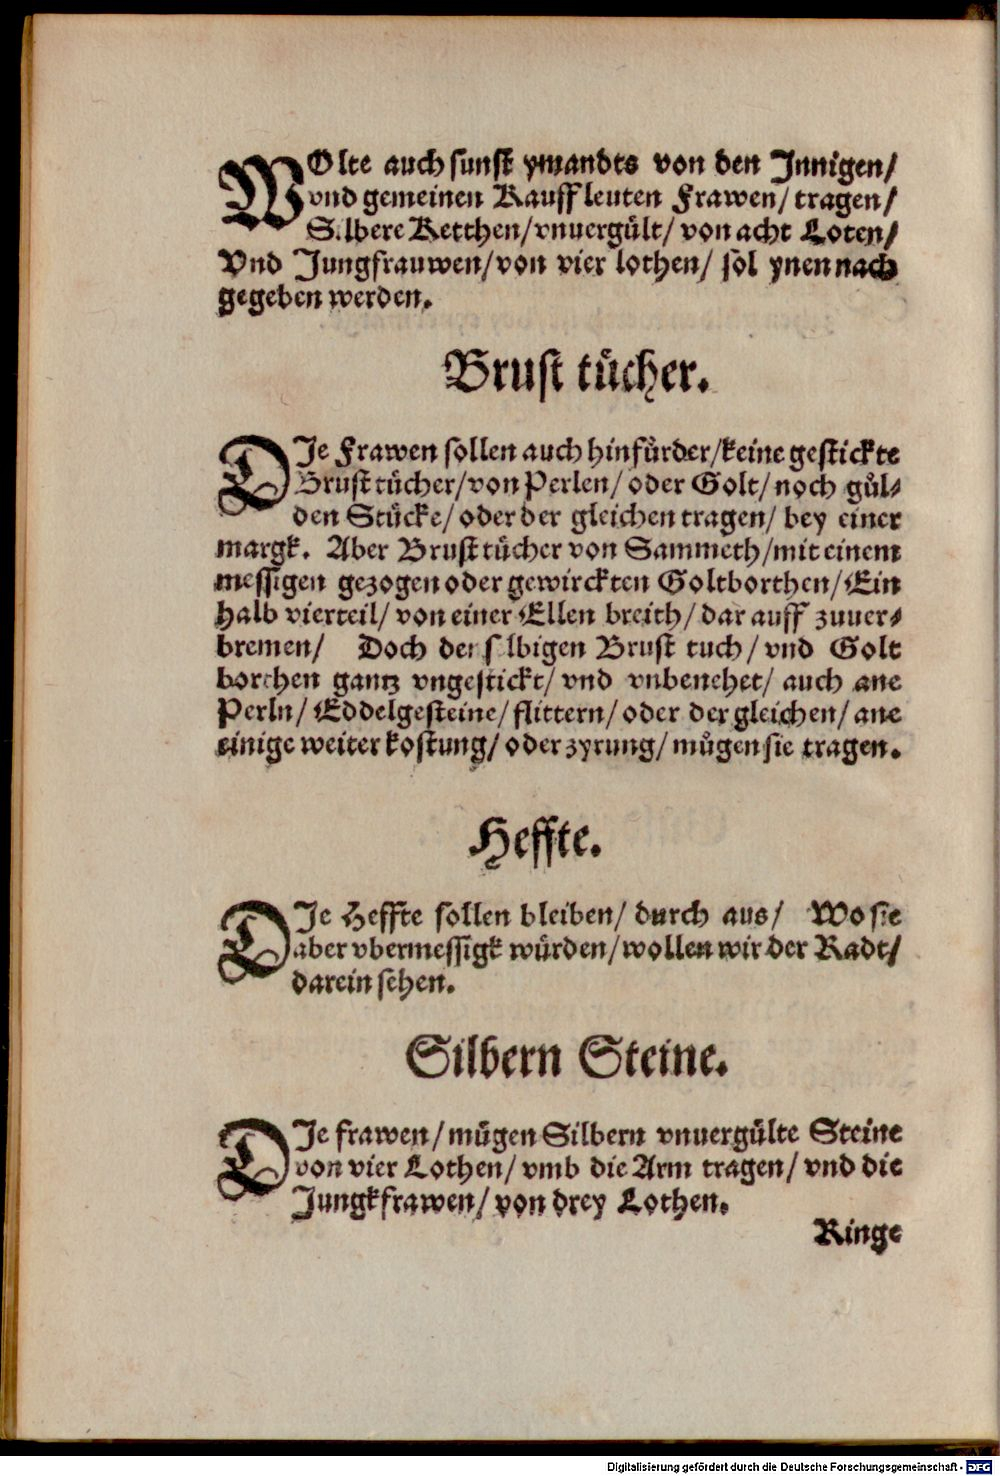 WOlte auch sunst ymandts von den Innigen/
vnd gemeinen Kauffleuten Frawen/ tragen/
Silbere Ketthen/ vnuergült/ von acht Loten/
Vnd Jungfrauwen/ von vier lothen/ sol ynen nach
gegeben werden.
Brust tücher.
DJe Frawen sollen auch hinfürder/ keine gestickte
Brust tücher/ von Perlen/ oder Golt/ noch gül⸗
den Stücke/ oder der gleichen tragen/ bey einer
margk. Aber Brust tücher von Sammeth/ mit einem
messigen gezogen oder gewirckten Goltborthen/ Ein
halb vierteil/ von einer Ellen breith/ dar auff zuuer⸗
bremen/ Doch der selbigen Brust tuch/ vnd Golt
borthen gantz vngestickt/ vnd vnbenehet/ auch ane
Perln/ Eddelgesteine/ flittern/ oder der gleichen/ ane
einige weiter kostung/ oder zyrung/ mügen sie tragen.
Heffte.
DJe Heffte sollen bleiben/ durch aus/ Wo sie
aber vbermessigk würden/ wollen wir der Radt/
darein sehen.
Silbern Steine.
DJe frawen/ mügen Silbern vnuergülte Steine
von vier Lothen/ vmb die Arm tragen/ vnd die
Jungkfrawen/ von drey Lothen.
Ringe
Digitalisierung gefördert durch die Deutsche Forschungsgemeinschaft - DFG